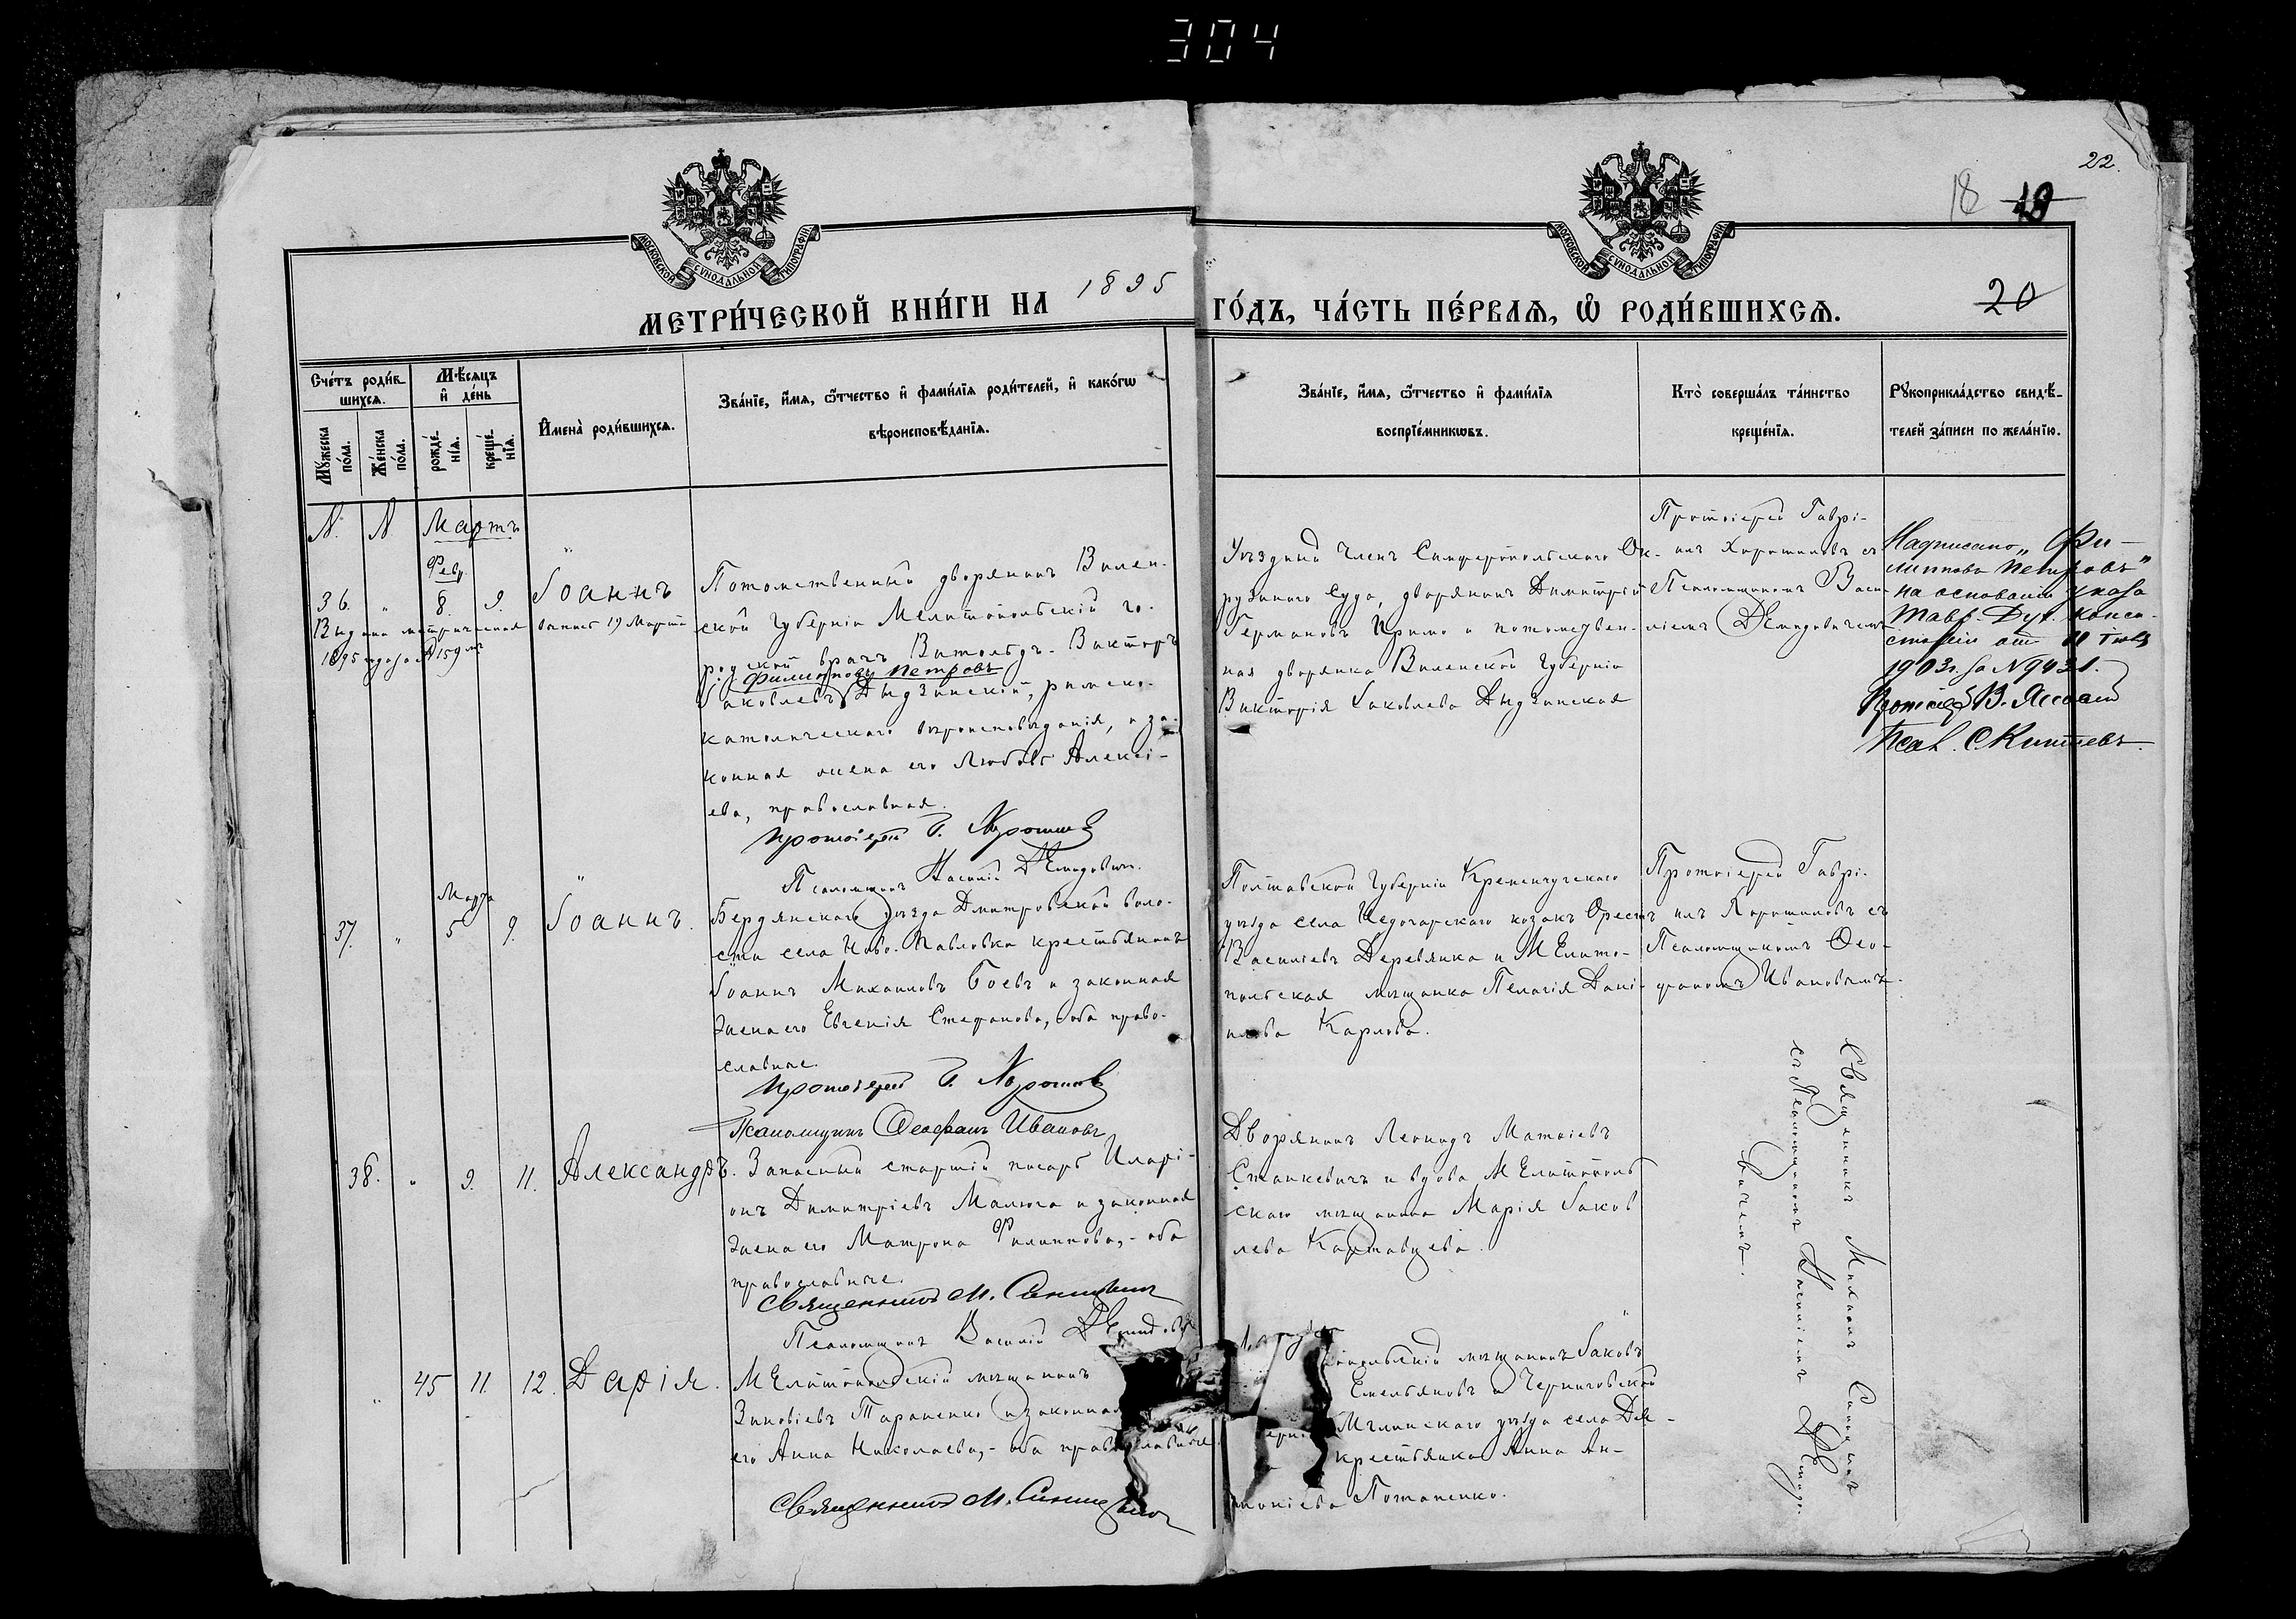 304
22.
18 19
20
МОСКОВСКОЙ СѴНОДАЛЬНОЙ ТИПОГРАФІИ
МОСКОВСКОЙ СѴНОДАЛЬНОЙ ТИПОГРАФІИ
МЕТРИ́ЧЕСКОЙ КНИ́ГИ НА 1895 ГО́ДЪ, ЧА́СТЬ ПЕ́РВАѦ, Ѽ РОДИ́ВШИХСѦ.
Сче́тъ роди́в
шихсѧ.
Мꙋ́жеска
по́ла.
Же́нска
по́ла.
Мѣ́сѧцъ
и҆ де́нь
рожде́-
нїѧ.
креще́-
нїѧ.
И҆мена̀ роди́вшихсѧ.
Зва́нїе, и҆́мѧ, ѻ҆́тчество и҆ фами́лїѧ роди́телей, и҆ како́гѡ
вѣроисповѣ́данїѧ.
Зва́нїе, и҆́мѧ, ѻ҆́тчество и҆ фами́лїѧ
воспрїе́мникѡвъ.
Кто̀ соверша́лъ та́инство
креще́нїѧ.
Рꙋкоприкла́дство свидѣ́-
телей за́писи по жела́нїю.
N. N Мартъ
Февр.
36. " 8. 9. Іоаннъ
Выдана метрическая выпись 19 Марта
1895 года за № 159 мъ
Потомственный дворянинъ Вилен-
ской Губерніи Мелитопольскій го-
родской врачъ Витольдъ-Викторъ
Филиппову Петровъ
Іаковлевъ Дыдзинскій, римско-
католическаго вѣроисповѣданія, и за-
конная жена его Любовь Алексі-
ева, православная.
Протоіерей Г. Хорошиловъ
Псаломщикъ Василій Демидовичъ.
Уѣздный Членъ Симферопольскаго Ок-
ружнаго Суда, дворянинъ Димитрій
Германовъ Примо и потомствен-
ная дворянка Виленской Губерніи
Викторія Іаковлева Дыдзинская
Протоіерей Гаврі-
илъ Хорошиловъ съ
Псаломщикомъ Васи-
ліемъ Демидовичемъ
Надписано „Фи-
липпова Петровъ"
на основаніи указа
Тавр. Дух. Конси-
сторіи отъ
1903 г. за N 9431.
Протоіерей В.
Псал. С
Марта
37. " 5 9. Іоаннъ.
Бердянскаго уѣзда Дмитровской воло-
сти села Ново-Павловка крестьянинъ
Іоаннъ Михаиловъ Боевъ и законная
жена его Евгенія Стефанова, оба право-
славные.
Протоіерей Г. Хорошиловъ
Псаломщикъ Ѳеофанъ Ивановъ
Полтавской Губерніи Кременчугскаго
уѣзда села Недогарскаго козакъ Орестъ
Василіевъ Деревянка и Мелито-
польская мѣщанка Пелагія Дані-
илова Карлова.
Протоіерей Гаврі-
илъ Хорошиловъ съ
Псаломщикомъ Ѳео-
фаномъ Ивановымъ.
38. " 9. 11. Александръ.
Запасный старшій писарь Иларі-
онъ Димитріевъ Малюга и законная
жена его Матрона Филиппова, - оба
православные.
Священникъ М. Синицынъ
Псаломщикъ Василій Демидовичъ
Дворянинъ Леонидъ Матвіевъ
Станкевичъ и вдова Мелитополь
скаго мѣщанина Марія Іаков
лева Картавцева.
Священникъ Михаилъ Синицынъ
съ Псаломщикомъ Василіемъ Демидо-
вичемъ.
" 45 11. 12. Дарія.
Мелитопольскій мѣщанинъ
Зиновіевъ Тараненко и законная
его Анна Николаева, - оба православные.
Священникъ М. Синицынъ
опольскій мѣщанинъ Іаковъ
Емельяновъ и Черниговской
Мглинскаго уѣзда села Дея-
крестьянка Анна Ан-
тоніева Потапенко.